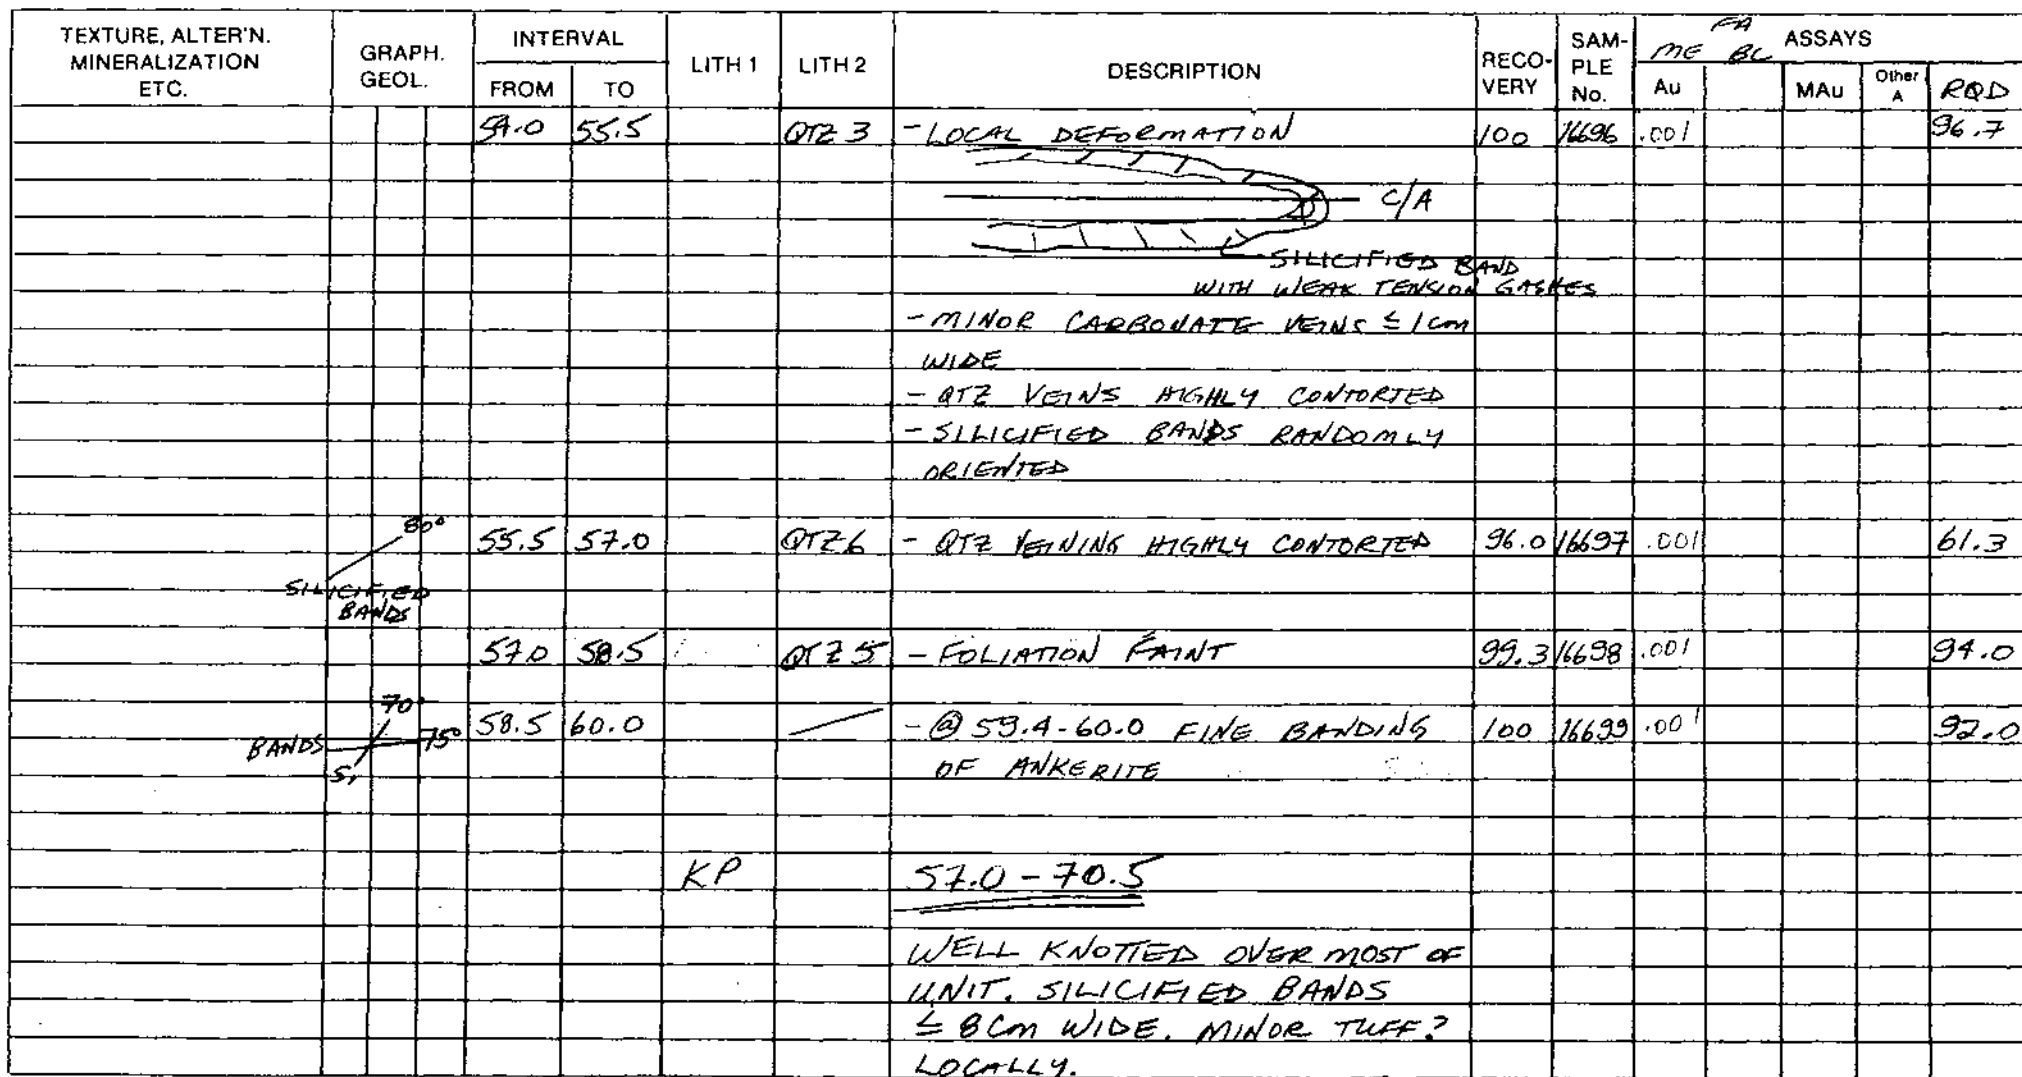 TEXTURE, ALTER'N. MINERALIZATION ETC. GRAPH. GEOL. INTERVAL FROM TO LITH 1 LITH 2 DESCRIPTION RECO-VERY SAM-PLE No. ME FA BL ASSAYS Au MAu Other A RQD
54.0 55.5 QTZ 3 - LOCAL DEFORMATION 100 16696 .001 96.7
C/A
SILICIFIED BAND
WITH WEAK TENSION GASHES
- MINOR CARBONATE VEINS ≤ 1cm
WIDE
- QTZ VEINS HIGHLY CONTORTED
- SILICIFIED BANDS RANDOMLY
ORIENTED
80°
55.5 57.0 QTZ 6 - QTZ VEINING HIGHLY CONTORTED 96.0 16697 .001 61.3
SILICIFIED
BANDS
57.0 58.5 QTZ 5 - FOLIATION FAINT 99.3 16698 .001 94.0
70°
BANDS 75° 58.5 60.0 - @ 59.4-60.0 FINE BANDING 100 16699 .001 92.0
S1 OF ANKERITE
KP 57.0 - 70.5
WELL KNOTTED OVER MOST OF
UNIT. SILICIFIED BANDS
≤ 8cm WIDE. MINOR TUFF?
LOCALLY.